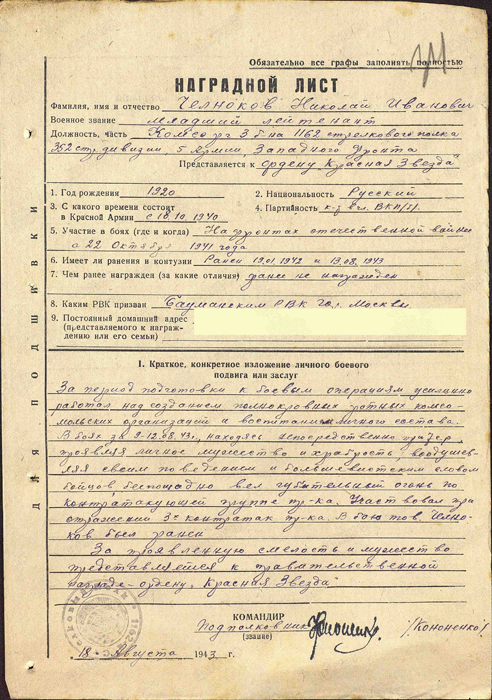 Обязательно все графы заполнять полностью
НАГРАДНОЙ ЛИСТ
Фамилия, имя и отчество Челноков Николай Иванович
Военное звание младший лейтенант
Должность, часть Комсорг 3 б-на 1162 стрелкового полка
352 стр. дивизии, 5 Армии, Западного Фронта
Представляется к ордену „Красная Звезда"
1. Год рождения 1920
2. Национальность Русский
3. С какого времени состоит в Красной Армии с 18.10.1940
4. Партийность к-т чл. ВКП/б/.
5. Участие в боях (где и когда) На фронтах отечественной войны
с 22 Октября 1941 года
6. Имеет ли ранения и контузии Ранен 19.01.1942 и 13.08.1943
7. Чем ранее награжден (за какие отличия) ранее не награжден
8. Каким РВК призван Бауманским РВК гор. Москвы.
9. Постоянный домашний адрес
(представляемого к награж-
дению или его семьи)
ДЛЯ ПОДШИВКИ
I. Краткое, конкретное изложение личного боевого
подвига или заслуг
За период подготовки к боевым операциям усиленно
работал над созданием полнокровных ротных комсо-
мольских организаций и воспитанием личного состава.
В боях за 9-12.08.43г. находясь
проявляя личное мужество и храбрость, воодушев-
ляя своим поведением и большевистским словом
бойцов, беспощадно вел губительный огонь по
контратакующей группе пр-ка. Участвовал при
отражении 3х контратак пр-ка. В бою тов. Челно-
ков был ранен
За проявленную смелость и мужество
представляется к правительственной
награде - ордену „Красная Звезда"
КОМАНДИР
Подполковник
(звание)
/Кононенко/
18 Августа 1943 г.